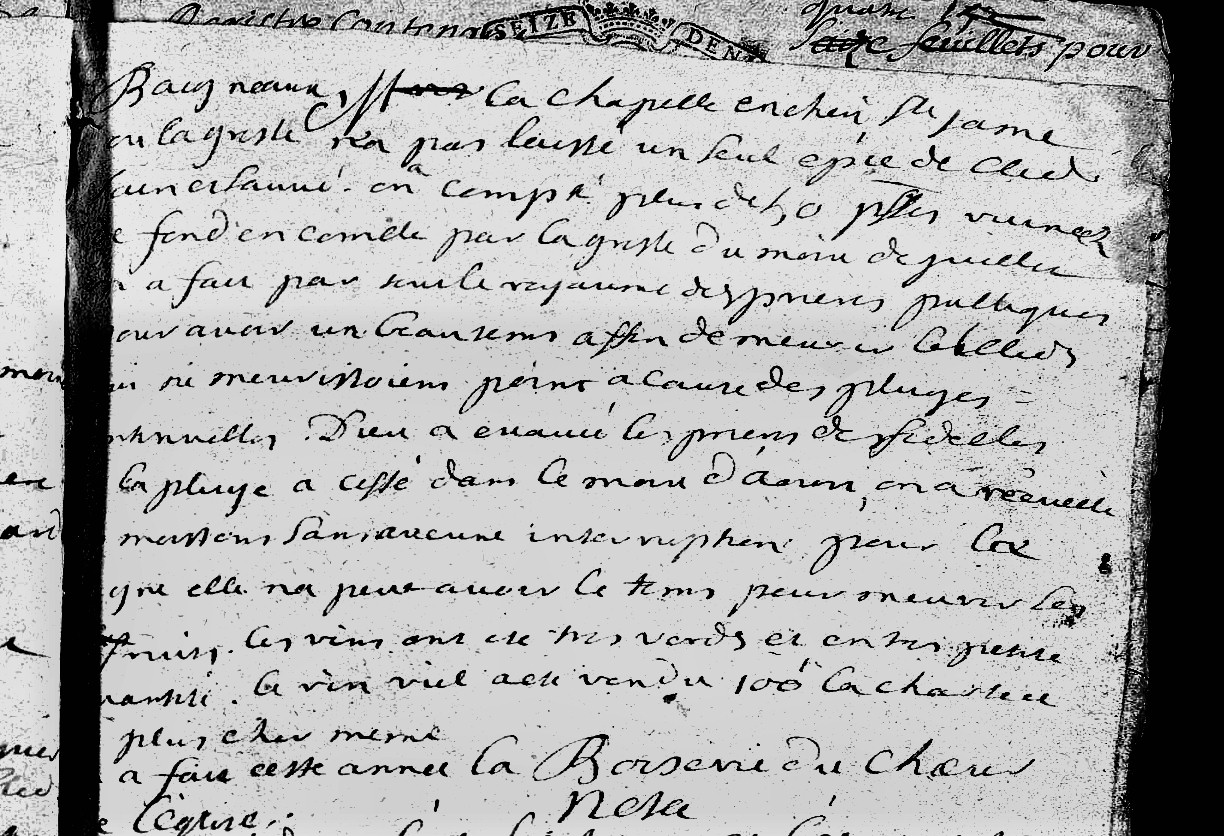 Registre Contenant
SEIZE DEN
quatre
seize feuillets pour
Baigneaux, la chapelle enchery St Jame
ou la gresle n'a pas laisse un seul epie de bled
on a compté plus de 50 villes
fond en comble par la gresle du mois de juillet
a fait par tout le royaume des prieres publiques
our avoir un beau tems affin de meurir les bleds
ui ne meurissoient point a cause des pluyes =
ntinuelles. Dieu a exaucé les prieres des fidelles
la pluye a cessé dans le mois d'aout, on a recueilli
moissons sans aucune interruption pour
que elle na peut avoir le tems pour meurir les
fruits. les vins ont ete tres verds et en tres petite
uantité. le vin viel a ete vendu 100ʰ la charteé
plus cher meme
a fait cette année la Boiserie du Chœur
e l'Eglise.
Nota